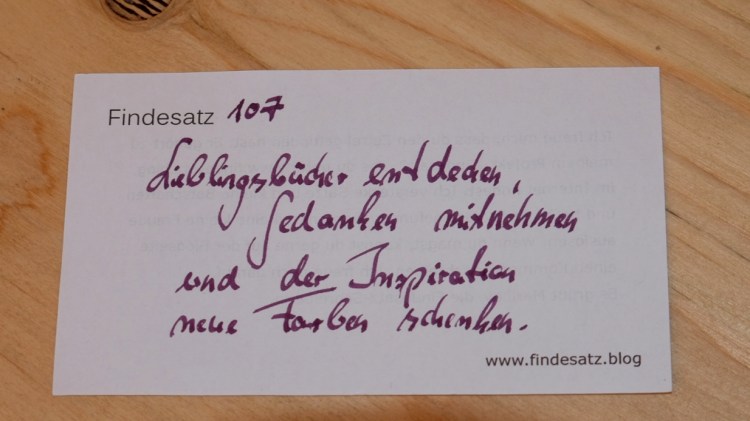 Findesatz 107
Lieblingsbücher entdecken,
Gedanken mitnehmen
und der Inspiration
neue Farben schenken.
www.findesatz.blog